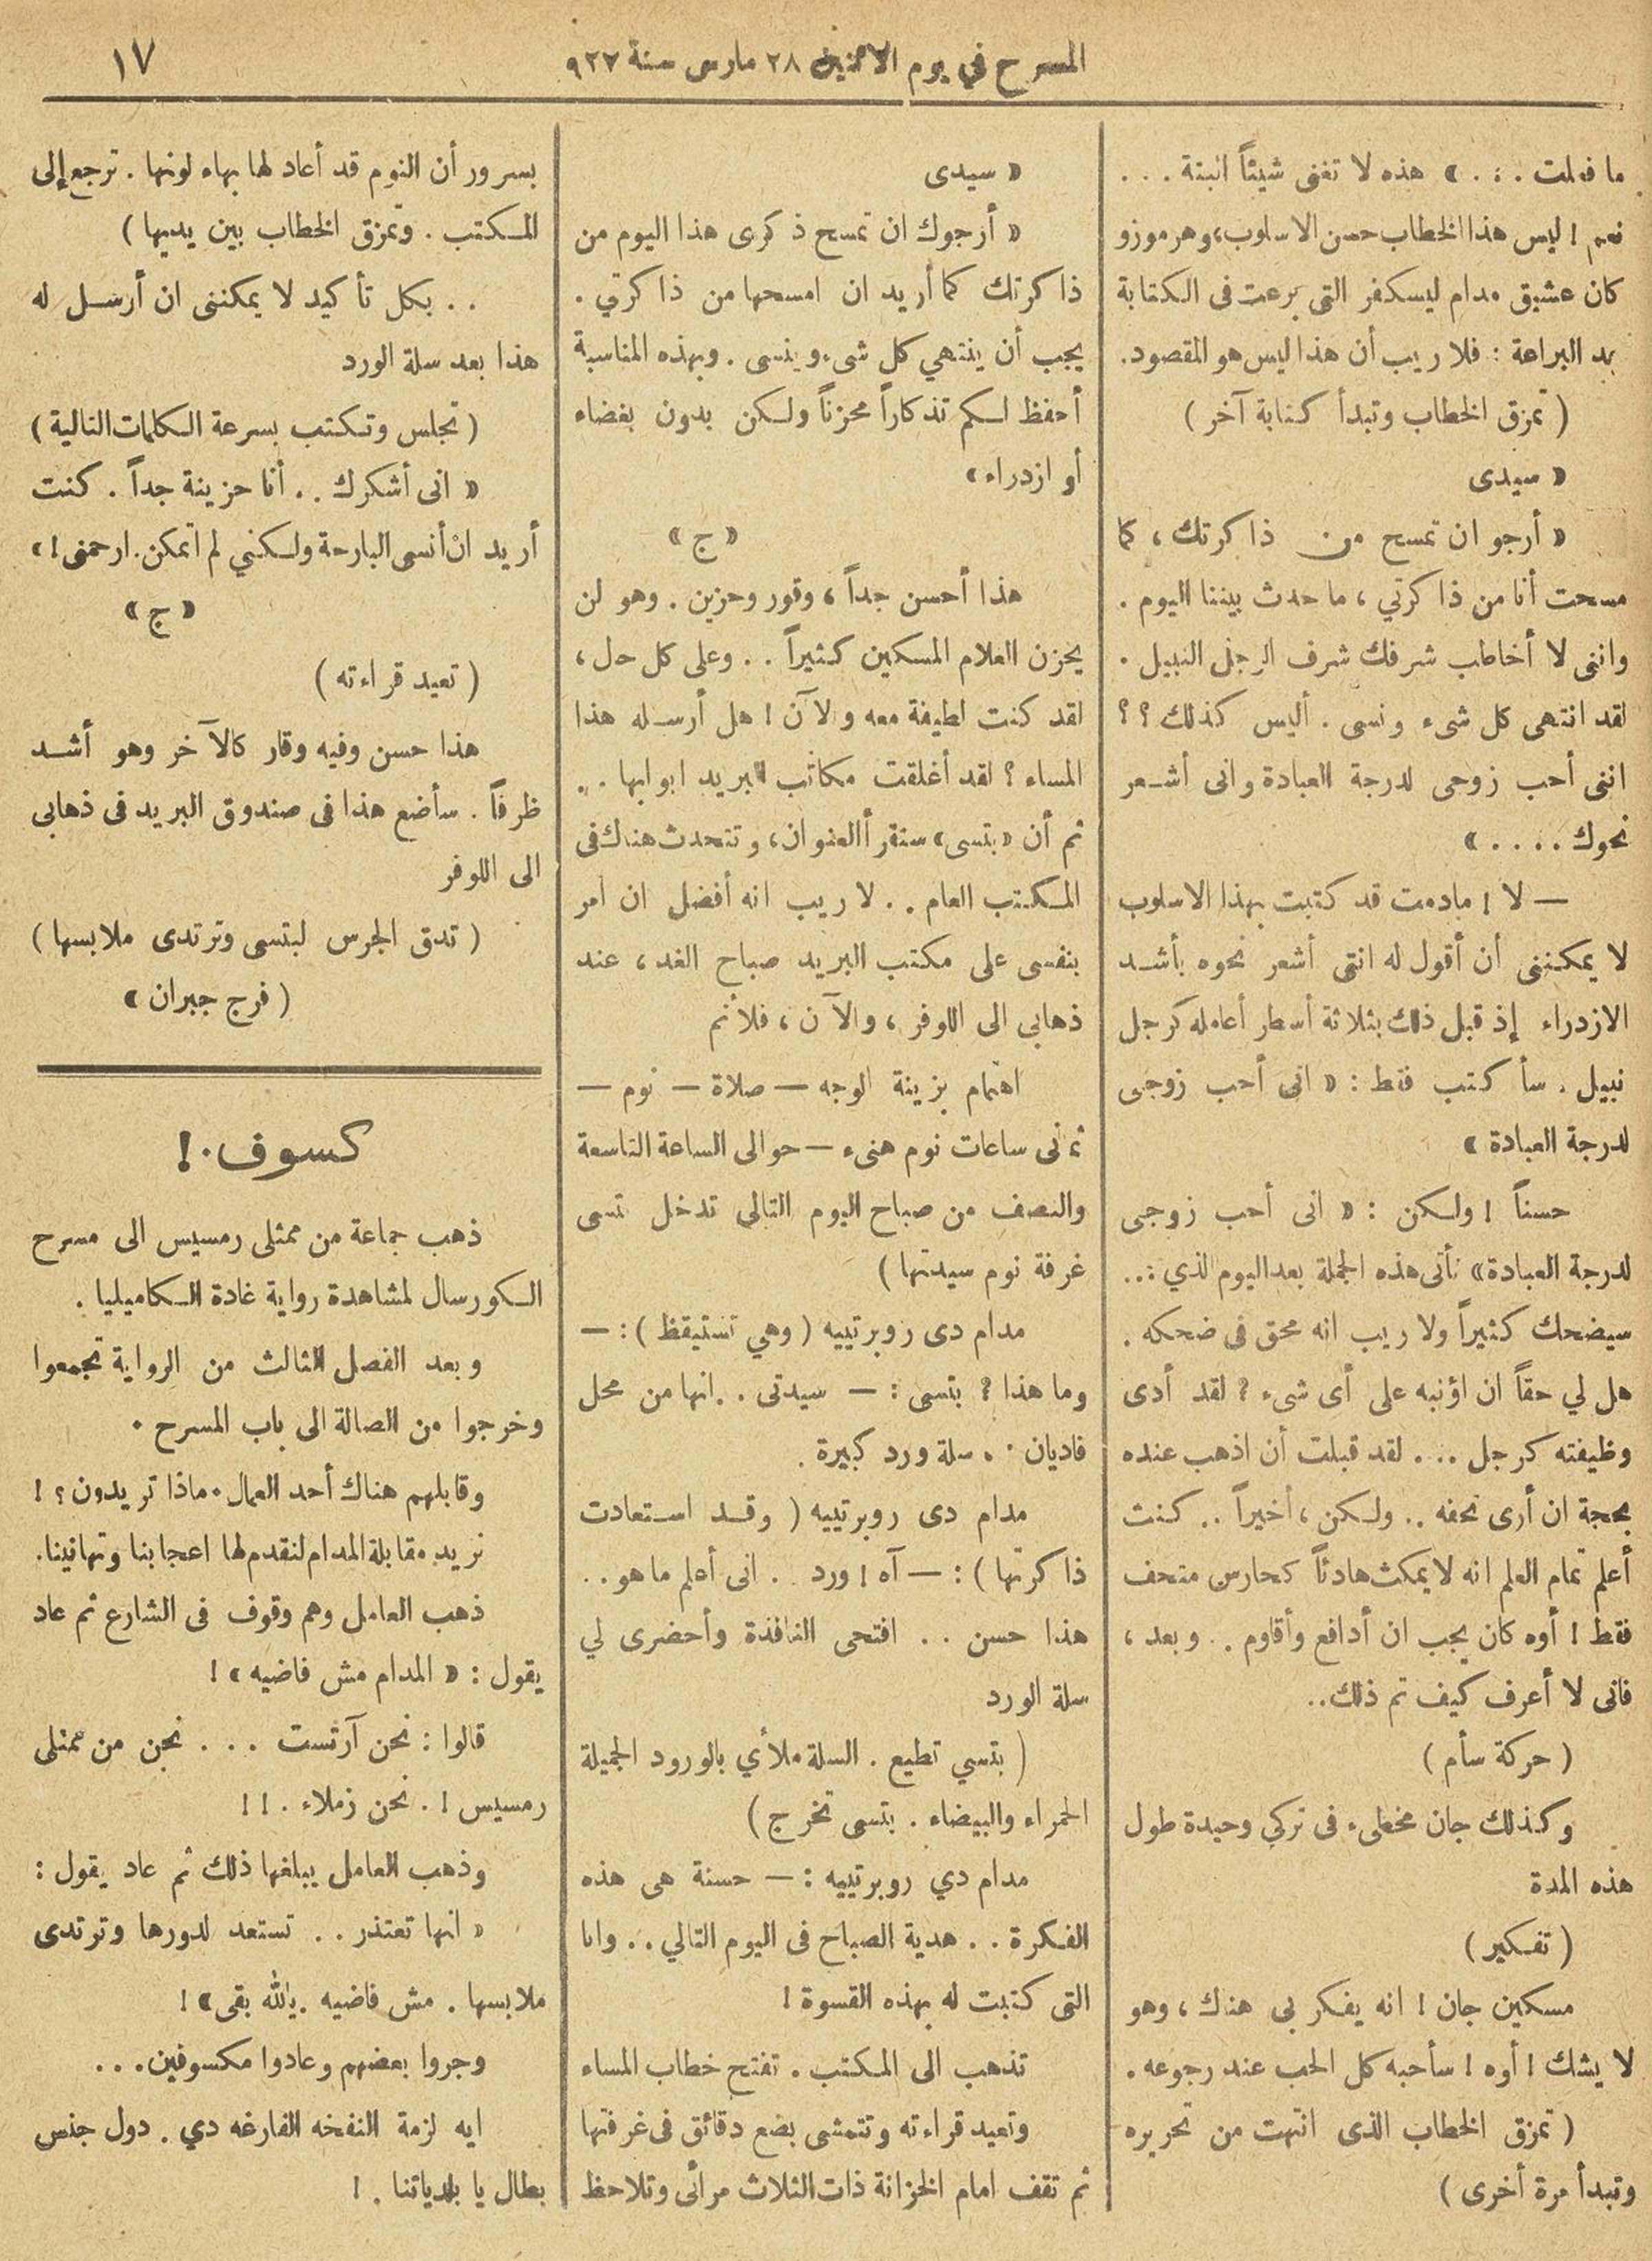 المسرح في يوم الاثنين ٢٨ مارس سنة ٩٢٧
١٧
ما فعلت . . . » هذه لا تغنى شيئاً البتة . . .
نعم ! ليس هذا الخطاب حسن الاسلوب، وهرموزو
كان عشيق مدام ليسكفر التى برعت فى الكتابة
بعد البراعة : فلا ريب أن هذا ليس هو المقصود.
( تمزق الخطاب وتبدأ كتابة آخر )
« سيدى
« أرجو ان تمسح من ذاكرتك ، كما
مسحت أنا من ذاكرتي ، ما حدث بيننا اليوم .
واننى لا أخاطب شرفك شرف الرجل النبيل .
لقد انتهى كل شىء ونسى . أليس كذلك ؟ ؟
اننى أحب زوجى لدرجة العبادة وانى أشعر
نحوك . . . . »
— لا ! مادمت قد كتبت بهذا الاسلوب
لا يمكننى أن أقول له انتى أشعر نحوه بأشد
الازدراء إذ قبل ذلك بثلاثة أسطر أعامله كرجل
نبيل . سأكتب فقط : « انى أحب زوجى
لدرجة العبادة »
حسناً ! ولكن : « انى أحب زوجى
لدرجة العبادة » تأتى هذه الجملة بعد اليوم الذي ...
سيضحك كثيراً ولا ريب انه محق فى ضحكه .
هل لي حقاً ان اؤنبه على أى شىء ? لقد أدى
وظيفته كرجل ... لقد قبلت أن اذهب عنده
بحجة ان أرى تحفه .. ولكن ، أخيراً .. كنت
أعلم تمام العلم انه لا يمكث هادئاً كحارس متحف
فقط ! أوه كان يجب ان أدافع وأقاوم .. وبعد ،
فانى لا أعرف كيف تم ذلك..
( حركة سأم )
وكذلك جان مخطىء فى تركي وحيدة طول
هذه المدة
( تفكير )
مسكين جان ! انه يفكر بى هناك ، وهو
لا يشك ! أوه ! سأحبه كل الحب عند رجوعه .
( تمزق الخطاب الذى انتهت من تحريره
وتبدأ مرة أخرى )
« سيدى
« أرجوك ان تمسح ذكرى هذا اليوم من
ذاكرتك كما أريد ان امسحها من ذاكرتي .
يجب أن ينتهي كل شىء وينسى . وبهذه المناسبة
أحفظ لكم تذكاراً محزناً ولكن بدون بغضاء
أو ازدراء »
« ج »
هذا أحسن جداً ، وقور وحزين . وهو لن
يحزن الغلام المسكين كثيراً .. وعلى كل حال ،
لقد كنت لطيفة معه والآن ! هل أرسله هذا
المساء ؟ لقد أغلقت مكاتب البريد ابوابها ..
ثم أن « بتسى » ستقرأ العنوان ، وتتحدث هناك فى
المكتب العام .. لا ريب انه أفضل ان امر
بنفسى على مكتب البريد صباح الغد ، عند
ذهابي الى اللوفر ، والآن ، فلأنم
اهتمام بزينة الوجه — صلاة — نوم —
ثمانى ساعات نوم هنىء — حوالى الساعة التاسعة
والنصف من صباح اليوم التالى تدخل بتسى
غرفة نوم سيدتها )
مدام دى روبرتييه ( وهي تستيقظ ) : —
وما هذا ? بتسى : — سيدتى .. انها من محل
فاديان .. سلة ورد كبيرة .
مدام دى روبرتييه ( وقد استعادت
ذاكرتها ) : — آه ! ورد .. انى أعلم ما هو ..
هذا حسن .. افتحى النافذة وأحضرى لي
سلة الورد
( بتسي تطيع . السلة ملأي بالورود الجميلة
الحمراء والبيضاء . بتسى تخرج )
مدام دي روبرتييه : — حسنة هى هذه
الفكرة .. هدية الصباح فى اليوم التالي .. وانا
التى كتبت له بهذه القسوة !
تذهب الى المكتب . تفتح خطاب المساء
وتعيد قراءته وتتمشى بضع دقائق فى غرفتها
ثم تقف امام الخزانة ذات الثلاث مرائى وتلاحظ
بسرور أن النوم قد أعاد لها بهاء لونها . ترجع إلى
المكتب . وتمزق الخطاب بين يديها )
.. بكل تأكيد لا يمكننى ان أرسل له
هذا بعد سلة الورد
( تجلس وتكتب بسرعة الكلمات التالية )
« انى أشكرك .. أنا حزينة جداً . كنت
أريد ان أنسى البارحة ولكنني لم اتمكن. ارحمنى ! »
« ج »
( تعيد قراءته )
هذا حسن وفيه وقار كالآخر وهو أشد
ظرفاً . سأضع هذا فى صندوق البريد فى ذهابى
الى اللوفر
( تدق الجرس لبتسى وترتدى ملابسها )
( فرج جبران »
كسوف . !
ذهب جماعة من ممثلى رمسيس الى مسرح
الكورسال لمشاهدة رواية غادة الكاميليا .
وبعد الفصل الثالث من الرواية تجمعوا
وخرجوا من الصالة الى باب المسرح .
وقابلهم هناك أحد العمال . ماذا تريدون ؟ !
نريد مقابلة المدام لنقدم لها اعجابنا وتهانينا.
ذهب العامل وهم وقوف فى الشارع ثم عاد
يقول : « المدام مش فاضيه » !
قالوا : نحن آرتست . . . نحن من ممثلى
رمسيس ! . نحن زملاء . ! !
وذهب العامل يبلغها ذلك ثم عاد يقول :
« انها تعتذر .. تستعد لدورها وترتدى
ملابسها . مش فاضيه . يالله بقى » !
وجروا بعضهم وعادوا مكسوفين...
ايه لزمة النفخه الفارغه دي . دول جنس
بطال يا بلدياتنا . !